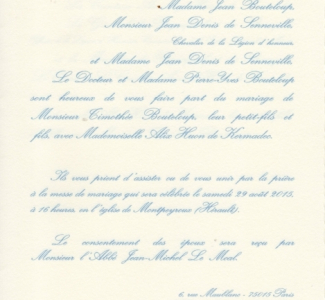 Madame Jean Bouteloup,
Monsieur Jean Denis de Senneville,
Chevalier de la Légion d'honneur,
et Madame Jean Denis de Senneville,
Le Docteur et Madame Pierre-Yves Bouteloup
sont heureux de vous faire part du mariage de
Monsieur Timothée Bouteloup, leur petit-fils et
fils, avec Mademoiselle Alix Huon de Kermadec.
Ils vous prient d'assister ou de vous unir par la prière
à la messe de mariage qui sera célébrée le samedi 29 août 2015,
à 16 heures en l'église de Montpeyroux (Hérault).
Le consentement des époux sera reçu par
Monsieur l'Abbé Jean-Michel Le
rue - 75015 Paris